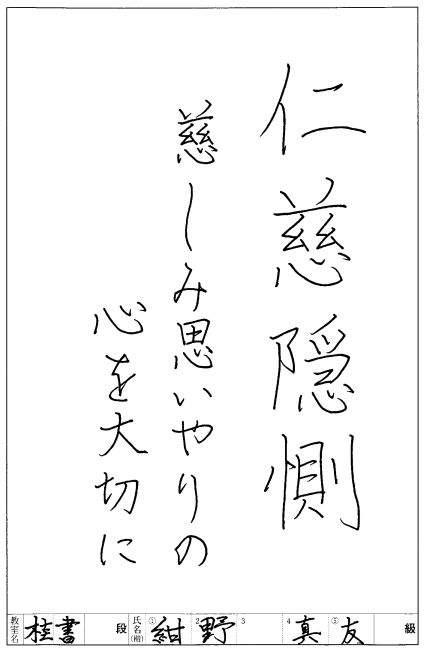 仁慈隠惻
慈しみ思いやりの
心を大切に
教室名 桂書 段 氏名(楷) ① 紺 2 野 3 4 真 ⑤ 友 級